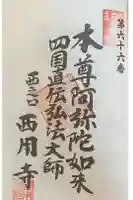 第六十六番
本尊阿弥陀如来
四国直伝弘法大師
西用寺